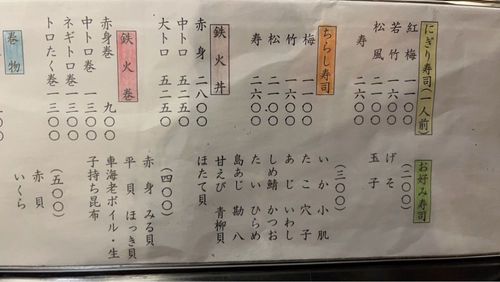 にぎり寿司(一人前)
紅梅 一一〇〇
若竹 一六〇〇
松風 二一〇〇
寿 二六〇〇
ちらし寿司
梅 一一〇〇
竹 一六〇〇
松 二一〇〇
寿 二六〇〇
鉄火丼
赤身 二八〇〇
中トロ 五二五〇
大トロ 五二五〇
鉄火巻
赤身巻 九〇〇
中トロ巻 一三〇〇
ネギトロ巻 一三〇〇
トロたく巻 一三〇〇
巻物
お好み寿司
(二〇〇)
げそ
玉子
(三〇〇)
いか 小肌
たこ 穴子
あじ いわし
しめ鯖 かつお
たい ひらめ
島あじ 勘八
甘えび 青柳貝
ほたて貝
(四〇〇)
赤身 みる貝
平貝 ほっき貝
車海老ボイル・生
子持ち昆布
(五〇〇)
赤貝
いくら